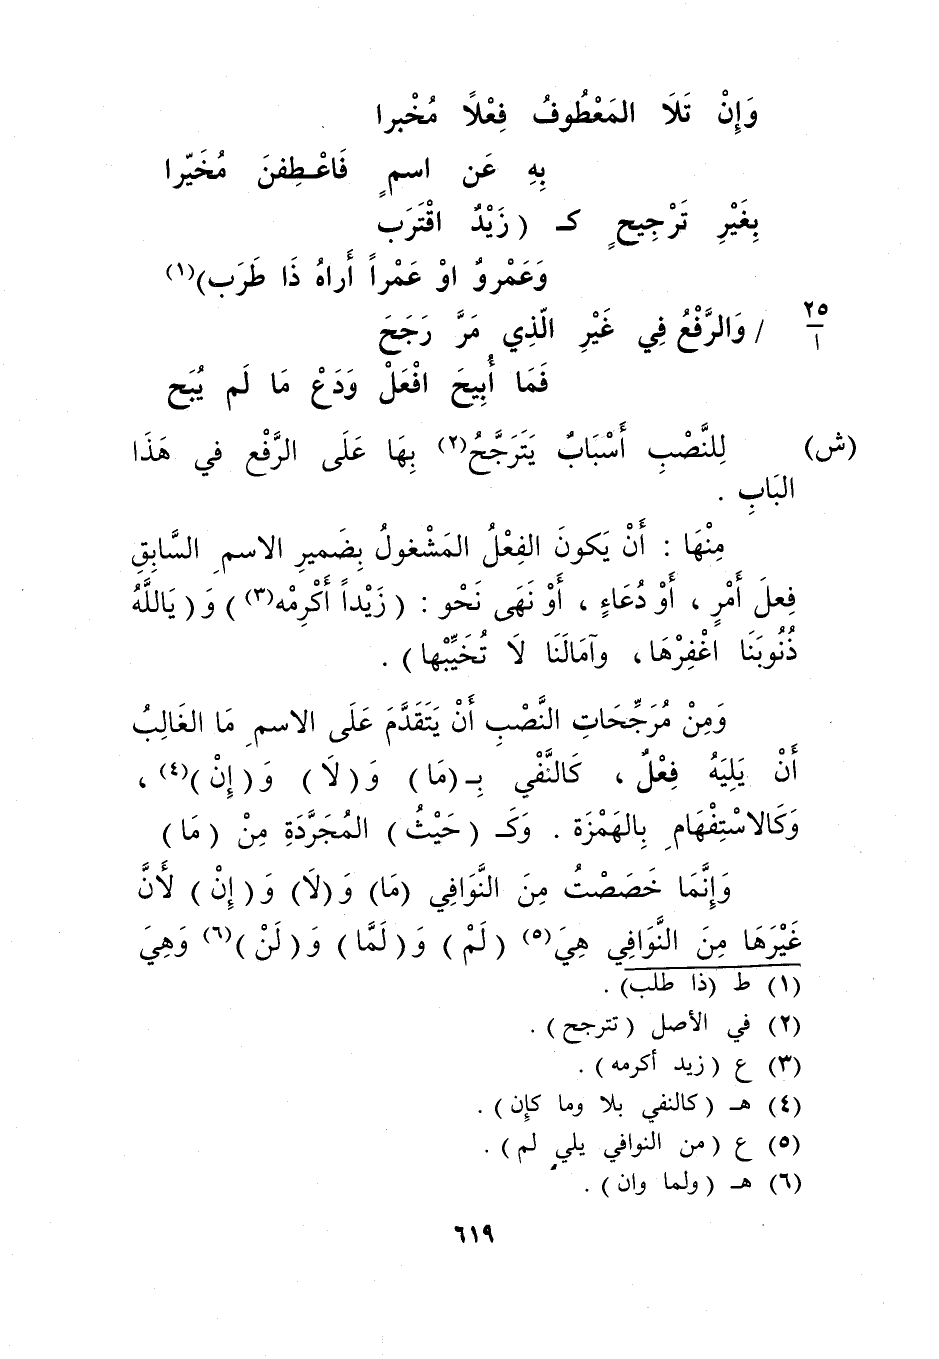 وَإِنْ تَلَا المَعْطُوفُ فِعْلاً مُخْبرا
بِهِ عَن اسمٍ فَاعْطِفنَ مُخَيّرا
بِغَيْرِ تَرْجِيحٍ كـ (زَيْدٌ اقْتَرَب
وَعَمْروٌ اوْ عَمْراً أَراهُ ذَا طَرَب)(١)
٢٥
أ
/ وَالرَّفْعُ فِي غَيْرِ الّذِي مَرَّ رَجَحَ
فَمَا أُبِيحَ افْعَلْ وَدَعْ مَا لَم يُبَح
(ش) لِلنَّصْبِ أَسْبَابٌ يَتَرَجَّحُ(٢) بِهَا عَلَى الرَّفْعِ في هَذَا
البَابِ .
مِنْهَا : أَنْ يَكونَ الفِعْلُ المَشْغولُ بِضَميرِ الاسمِ السَّابِقِ
فِعلَ أَمْرٍ ، أَوْ دُعَاءٍ ، أَوْ نَهَى نَحْو : (زَيْداً أَكْرِمْه(٣)) وَ(يَاللَّهُ
ذُنُوبَنَا اغْفِرْهَا، وآمَالَنَا لَا تُخَيِّبْها) .
وَمِنْ مُرَجِّحَاتِ النَّصْبِ أَنْ يَتَقَدَّمَ عَلَى الاسمِ مَا الغَالِبُ
أَنْ يَلِيَهُ فِعْلٌ ، كَالنَّفْي بِـ(مَا) وَ(لَا) وَ(إِنْ)(٤) ،
وَكَالاسْتِفْهَامِ بِالهَمْزَة . وَكَـ (حَيْثُ) المُجَرَّدَةِ مِنْ (مَا)
وَإِنَّمَا خَصَصْتُ مِنَ النَّوَافِي (مَا) وَ(لَا) وَ(إِنْ) لأَنَّ
غَيْرَهَا مِنَ النَّوَافِي هِيَ(٥) (لَمْ) وَ(لَمَّا) وَ(لَنْ)(٦) وَهِيَ
(١) ط (ذا طلب) .
(٢) في الأصل (تترجح) .
(٣) ع (زيد أكرمه) .
(٤) هـ (كالنفي بلا وما كإن) .
(٥) ع (من النوافي يلي لم) .
(٦) هـ (ولما وان) .
٦١٩